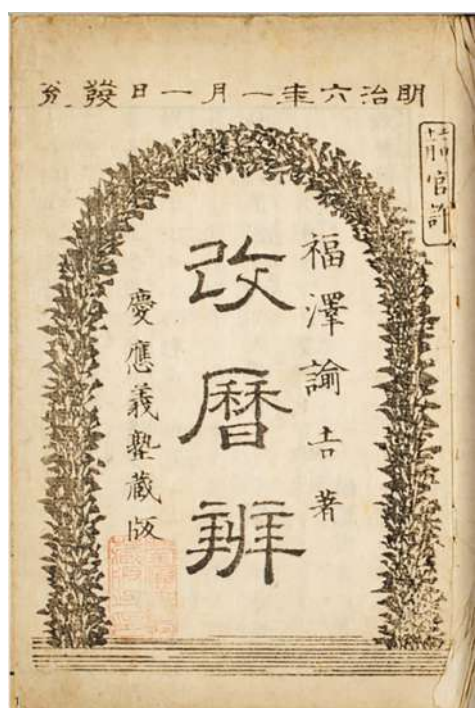 明治六年一月一日發兌
官許
福澤諭吉著
改暦辨
慶應義塾藏版